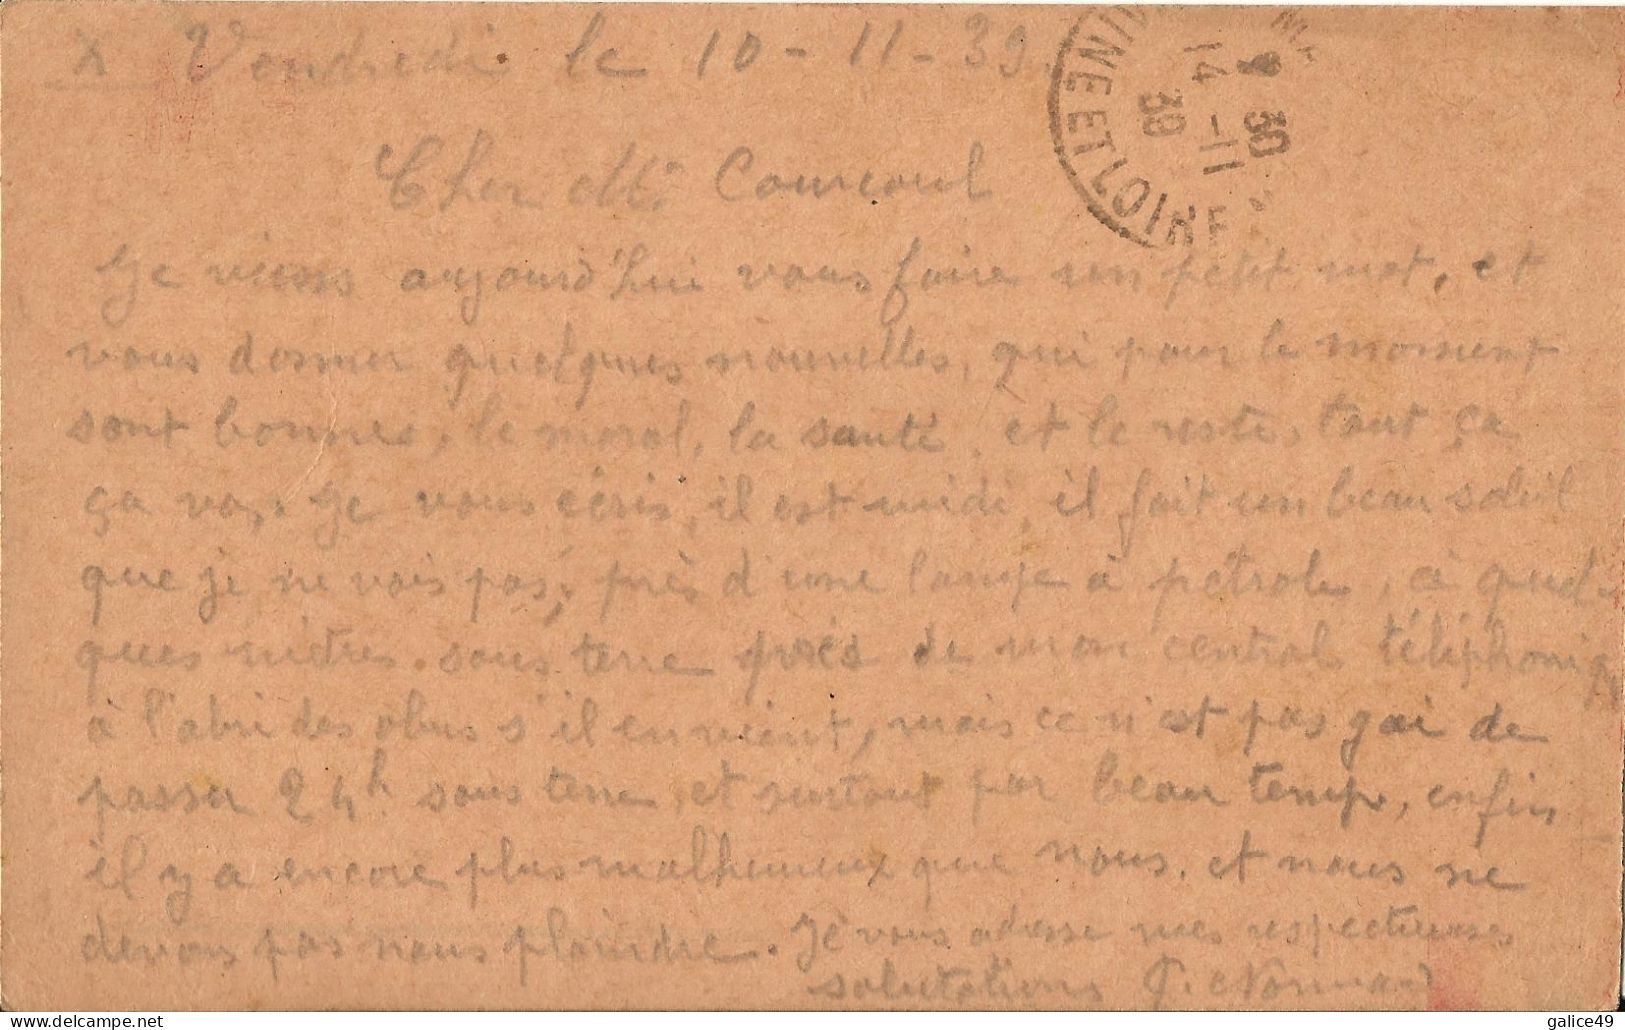 X Vendredi le 10-11-39.
14-11
39
30
INE ET LOIRE
Cher M. Courcoul
Je viens aujourd'hui vous faire un petit mot, et
vous donner quelques nouvelles, qui pour le moment
sont bonnes, le moral, la santé, et le reste, tout ça
ça va. Je vous écris, il est midi, il fait un beau soleil
que je ne vois pas, près d'une lampe à pétrole, à quel-
ques mètres sous terre près de mon central téléphoniq
à l'abri des obus s'il en vient, mais ce n'est pas gai de
passer 24h sous terre, et surtout par beau temps, enfin
il y a encore plus malheureux que nous, et nous ne
devons pas nous plaindre. Je vous adresse mes respectueuses
salutations Normand
galice49